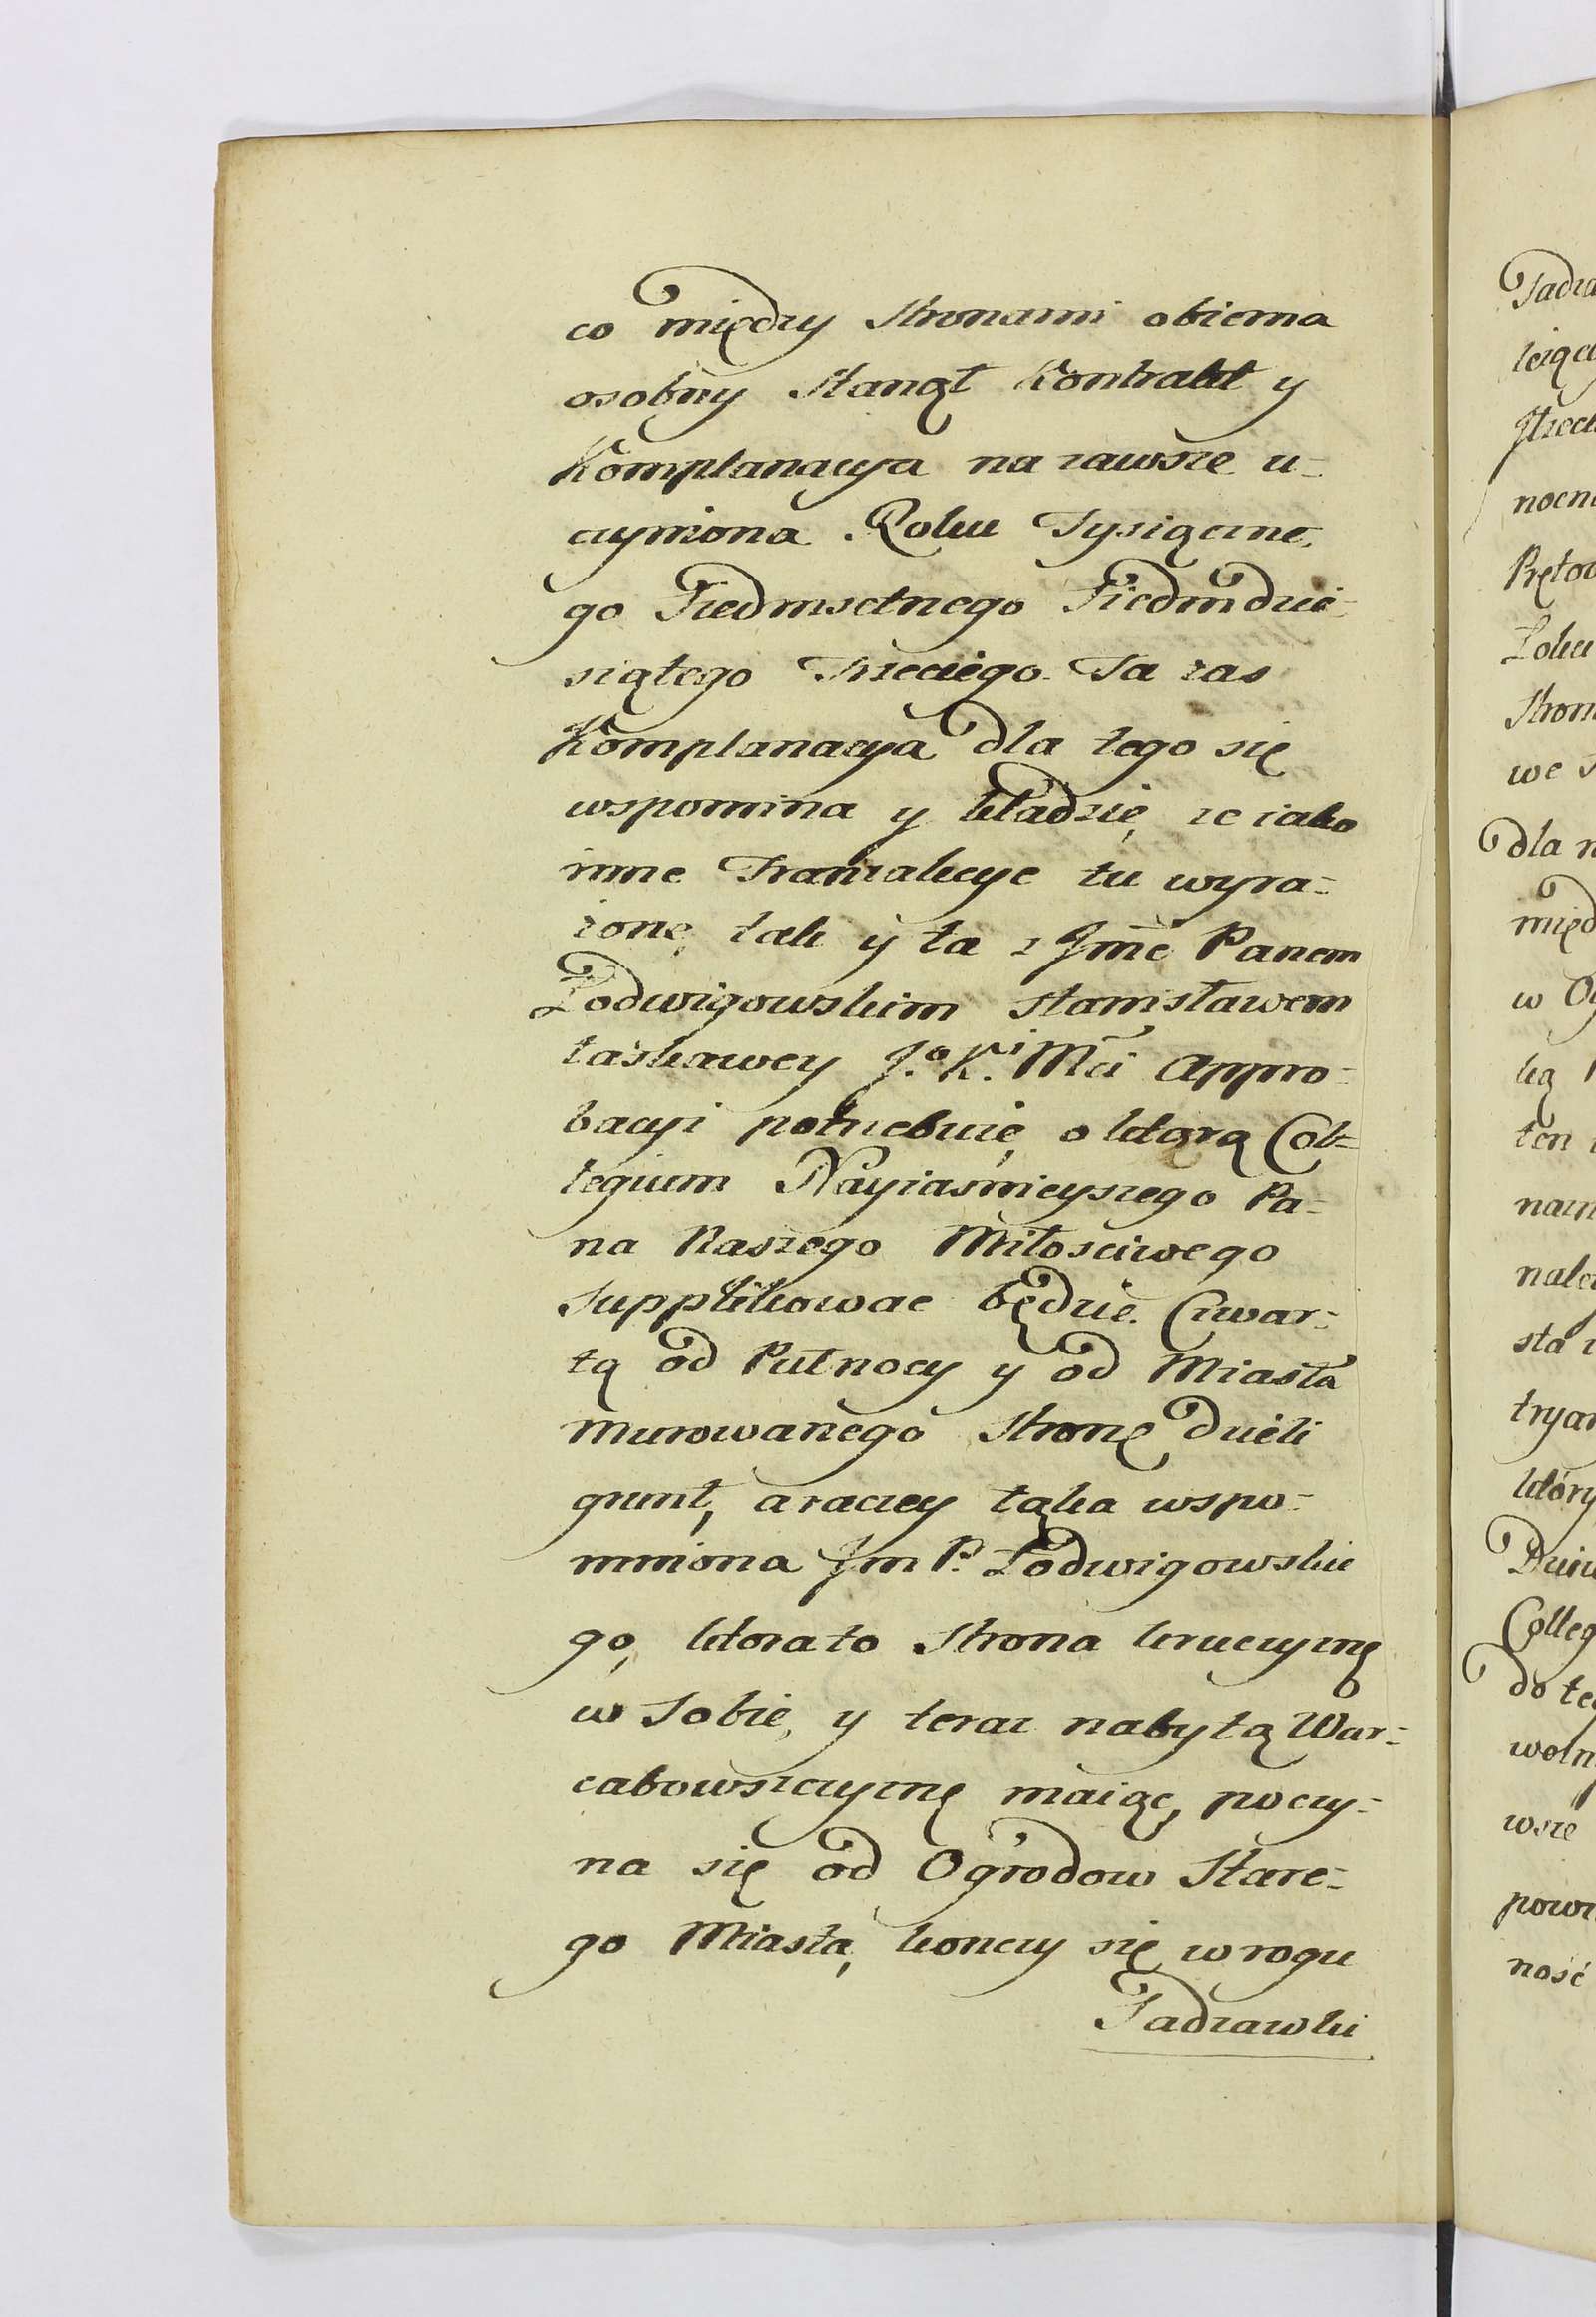 co między Stronami obiema
osobny Stanął Kontrakt y
Komplanacya na zawsze u=
czyniona Roku Tysiączne-
go Siedmsetnego Siedmdzie-
siątego Trzeciego. Ta zas
Komplanacya dla tego się
wspomina y kładzie, ze iako
inne Tranzakcye tu wyra=
żone, tak y ta z Jmć Panem
Lodwigowskim Stanisławem
łaskawey J.o K.i Mci Appro=
bacyi potrzebuie, o ktorą Col=
legium Nayiasnieyszego Pa=
na Naszego Miłosciwego
Supplikowac będzie. Czwar=
tą od Pułnocy y od Miasta
Murowanego Stronę dzieli
grunt, a raczey łąka wspo=
mniona Jm P. Lodwigowskie
go, ktora to Strona kruczyznę
w Sobie, y teraz nabytą War=
cabowszczyznę maiąc, poczy=
na się od Ogrodow Stare=
go Miasta, konczy się w rogu
Sadzawki
Sadza
nocn
Prętow
Stron
we
dla n
międ
w Og
ką
ten
nazn
należ
sta
który
Colleg
do te
woln
wsze
powi
ność